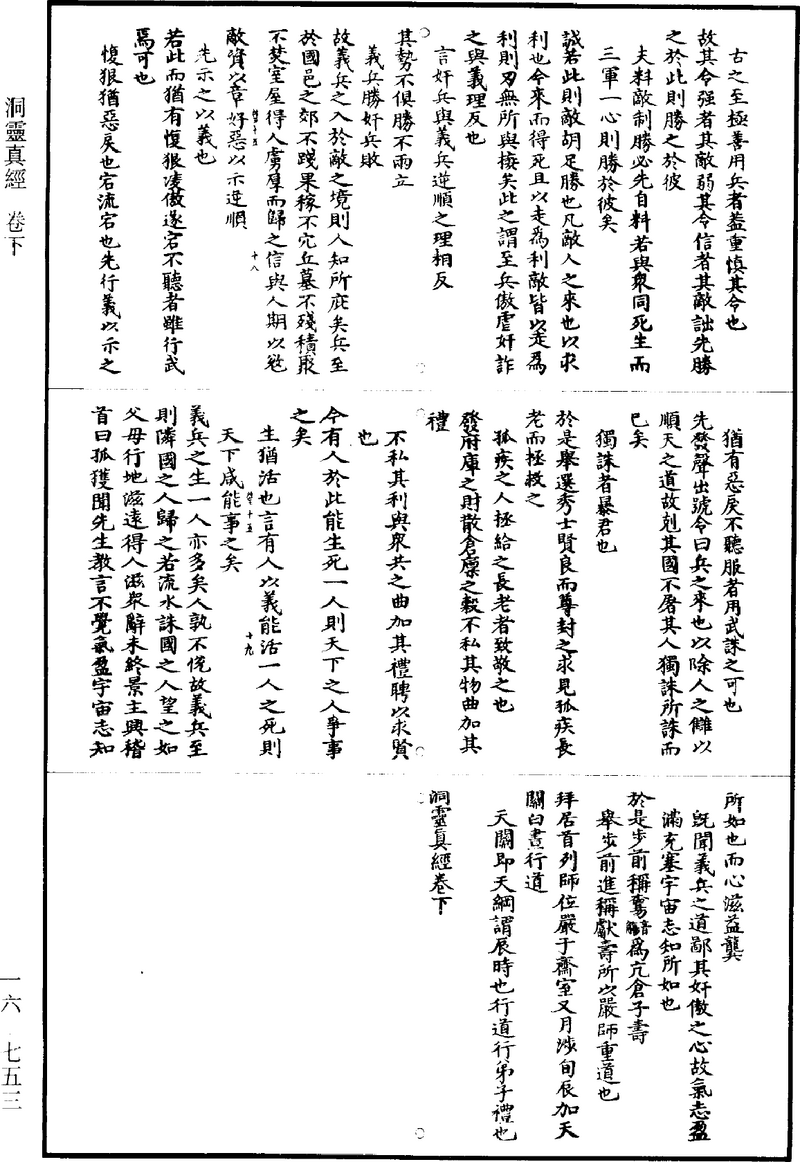 古之至極善用兵者蓋重慎其令也
故其令强者其敵弱其令信者其敵詘先勝
之於此則勝之於彼
夫料敵制勝必先自料若與衆同死生而
三軍一心則勝於彼矣
誠若此則敵胡足勝也凡敵人之來也以求
利也今來而得死且以走爲利敵皆以走爲
利則刃無所與接矣此之謂至兵傲虐奸詐
之與義理反也
言奸兵與義兵逆順之理相反
其勢不俱勝不兩立
義兵勝奸兵敗
故義兵之入於敵之境則人知所庇矣兵至
於國邑之郊不踐果稼不穴丘墓不殘積聚
不焚室屋得人虜厚而歸之信與人期以
敵資以章好惡以示逆順
先示之以義也
若此而猶有愎狠凌傲遂宕不聽者雖行武
焉可也
愎狠猶惡戾也宕流宕也先行義以示之
猶有惡戾不聽服者用武誅之可也
先發聲出號令曰兵之來也以除人之讎以
順天之道故剋其國不屠其人獨誅所誅而
已矣
獨誅者暴君也
於是舉選秀士賢良而尊封之求見孤疾長
老而拯救之
孤疾之人拯給之長老者致敬之也
發府庫之財散倉廩之穀不私其物曲加其
禮
不私其利與衆共之曲加其禮聘以求賢
也
今有人於此能生死一人則天下之人爭事
之矣
生猶活也言有人以義能活一人之死則
天下咸能事之矣
義兵之生一人亦多矣人孰不悅故義兵至
則隣國之人歸之若流水誅國之人望之如
父母行地滋遠得人滋衆辭未終景主興稽
首曰孤獲聞先生教言不覺氣盈宇宙志知
所如也而心滋益龔
旣聞義兵之道鄙其奸傲之心故氣志盈
滿充塞宇宙志知所如也
於是步前稱爲亢倉子壽
舉步前進稱獻壽所以嚴師重道也
拜居首列師位嚴于齋室又月涉旬辰加天
關白晝行道
天關即天綱謂辰時也行道行弟子禮也
洞靈真經卷下
洞靈真經 卷下
一六 七五三